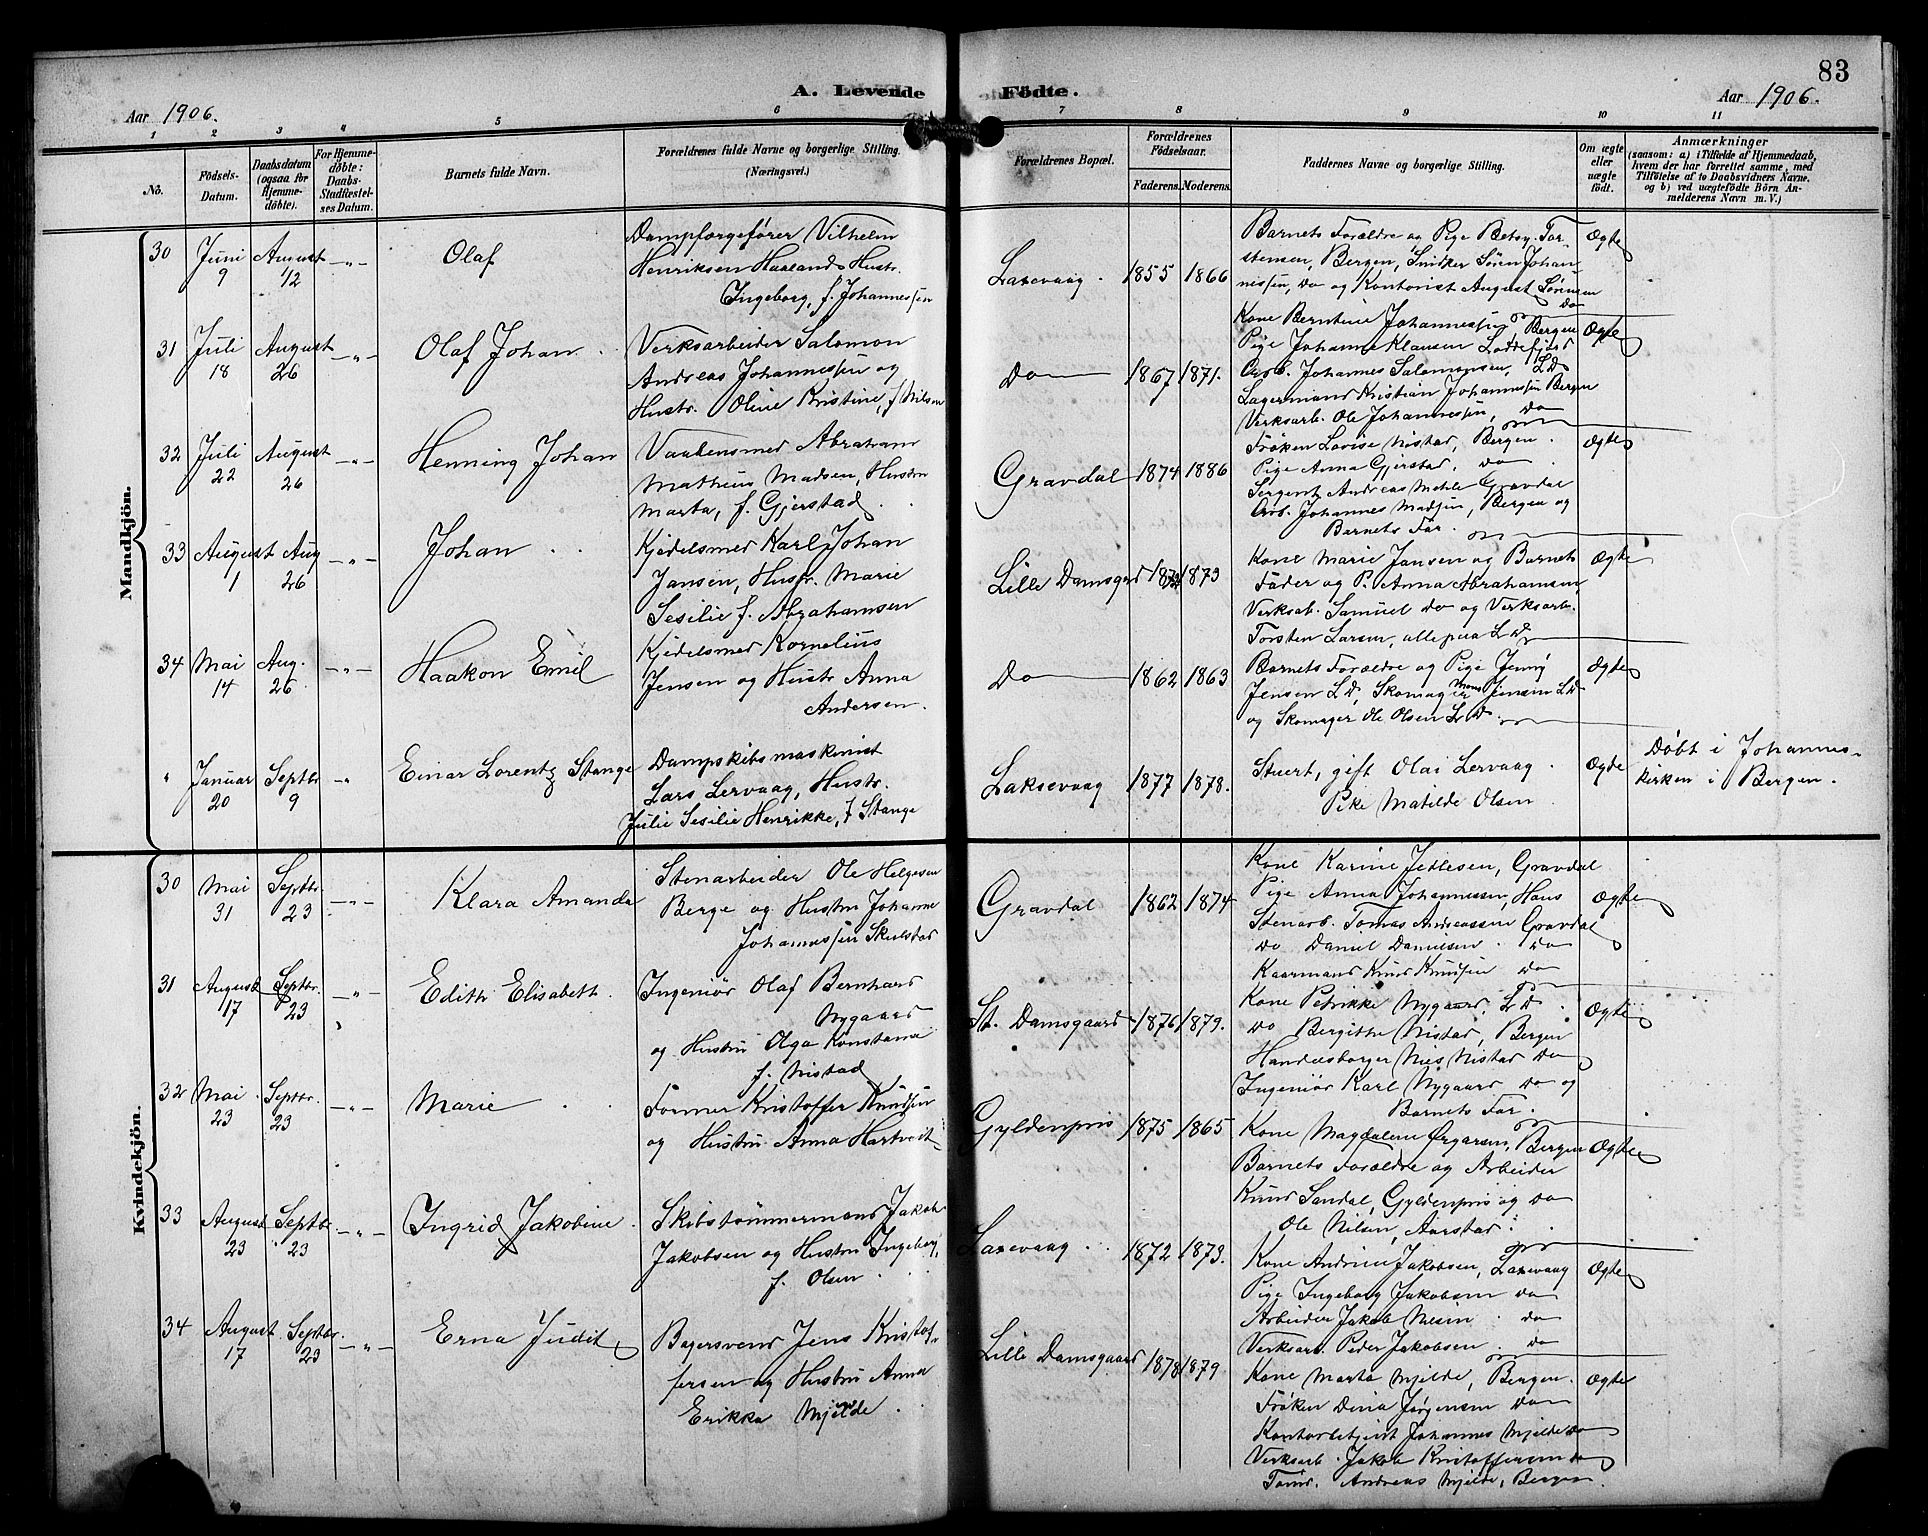 83
A. Levende Födte.
Aar 1906.
Aar 1906.
1 2 3 4 5 6 7 8 9 10 11
No.
Födsels-Datum.
Daabsdatum (ogsaa for Hjemme-döbte).
For Hjemme-döbte: Daabs-Stadfæstel-ses Datum.
Barnets fulde Navn.
Forældrenes fulde Navne og borgerlige Stilling. (Næringsvei.)
Forældrenes Bopæl.
Forældrenes Födselsaar.
Faderens. Moderens.
Faddernes Navne og borgerlige Stilling.
Om ægte eller uægte födt.
Anmærkninger
(saasom: a) i Tilfælde af Hjemmedaab, hvem der har forrettet samme, med Tilföielse af to Daabsvidners Navne. og b) ved uægtefödte Börn An-melderens Navn m. V.)
Mandkjön.
30 Juni 9 August 12 -"- Olaf
Dampfærgefører Vilhelm
Henriksen Haaland, Hustr.
Ingeborg, f. Johannessen
Laxevaag. 1855 1866
Barnets Forældre og Pige Betsy Tor-
stensen, Bergen, Snidker Sören Johan-
nessen, do og Kontorist August Sörensen
do
Ægte
31 Juli 18 August 26 -"- Olaf Johan
Verksarbeider Salomon
Andreas Johannessen og
Hustr. Oline Kristine, f Nilsen
Do 1867 1871.
Kone Berntine Johannessen, Bergen
Pige Johanna Klausen Loddefjord
Arb. Johannes Salomonsen, L D
Lagermand Kristian Johannessen Bergen
Verksarb. Ole Johannessen, do
Ægte
32 Juli 22 August 26 -"- Henning Johan
Vaabensmed Abraham
Matheus Madsen, Hustru
Marta, f. Gjerstad.
Gravdal 1874 1886
Frøken Lovise Nistad, Bergen.
Pige Anna Gjerstad, do
Sergent Andreas Mehle Gravdal
Arb. Johannes Madsen, Bergen og
Barnets Far.
Ægte
33 August 1 Aug 26 -"- Johan
Kjedelsmed Karl Johan
Jansen, Hustr. Marie
Sesilie f. Abrahamsen
Lille Damsgård 1873
Kone Marie Jansen og Barnets
Fader og P. Anna Abrahamsen,
Verksab. Samuel do og Verksarb.
Torsten Larsen, alle paa L D
Ægte
34 Mai 14 Aug. 26 -"- Haakon Emil
Kjedelsmed Kornelius
Jensen og Hustr Anna
Andersen.
Do 1862 1863
Barnets Forældre og Pige Jenny
Jensen L D, Skomager Mons Jensen L D
og Skomager Ole Olsen L D.
Ægte
" Januar 20 Septbr 9 " Einar Lorentz Stange
Dampskibsmaskinist
Lars Lervaag, Hustr.
Julie Sesilie Henrikke, f Stange
Laksevaag 1877 1878.
Stuert, gift Olai Lervaag.
Pike Matilde Olsen
Ægte
Døbt i Johannes-
kirken i Bergen.
Kvindekjön.
30 Mai 31 Septbr. 23 -"- Klara Amanda
Stenarbeider Ole Helgesen
Berge og Hustru Johanne
Johannessen Skulstad
Gravdal 1862 1874
Kone Karine Jetlesen, Gravdal
Pige Anna Johannessen, Haus
Stenarb. Tomas Andreassen Gravdal
do Daniel Danielsen. do
Kaarmand Knud Knudsen do
Ægte
31 August 17 Septbr. 23 -"- Edith Elisabeth.
Ingeniør Olaf Bernhard
Nygaard
og Hustru Olga Konstance
f. Nistad
St. Damsgaard 1876 1879.
Kone Petrikke Nygaard, L D.
do Bergitte Nistad, Bergen
Handelsborger Nils Nistad do
Ingeniør Karl Nygaard do og
Barnets Far.
Ægte
32 Mai 23 Septbr. 23 -"- Marie
Former Kristoffer Knudsen
og Hustru Anna Hartveit
Gyldenpris 1875 1865
Kone Magdalene Ørgarsen, Bergen
Barnets Forældre og Arbeider
Knud Sandal, Gyldenpris og do
Ole Nilsen, Aarstad.
Ægte
33 August 23 Septbr. 23 -"- Ingrid Jakobine
Skibstømmermand Jakob
Jakobsen og Hustru Ingeborg,
f. Olsen.
Laxevaag 1872 1873.
Kone Andrine Jakobsen, Laxevaag
Pige Ingeborg Jakobsen do
Arbeider Jakob Nilsen. do
Verksarb. Peder Jakobsen. do
Ægte
34 August 17 Septbr. 23 -"- Erna Judit
Bagersvend Jens Kristof-
fersen og Hustru Anna
Erikka Mjelde.
Lille Damsgaard 1878 1879
Kone Marta Mjelde, Bergen.
Frøken Dina Jørgensen do
Kontorbetjent Johannes Mjelde do
Verksarb. Jakob Kristoffersen do
Tømr. Andreas Mjelde, Bergen
Ægte